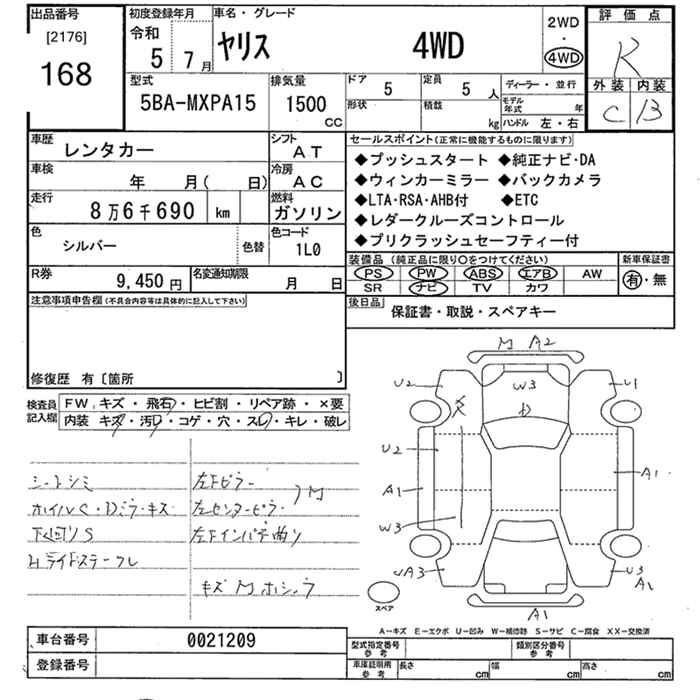 出品番号 初度登録年月 車名・グレード
[2176] 168
令和 5 7月 ヤリス 4WD
2WD・4WD
評価点 R
外装 内装
C B
型式 排気量 ドア 5 定員 5人 ディーラー・並行
5BA-MXPA15 1500 CC
形状 積載 kg モデル年式 年
ハンドル 左・右
車歴 レンタカー シフト AT
車検 年 月( 日) 冷房 AC
走行 8万6千690 km 燃料 ガソリン
色 シルバー 色替 色コード 1L0
R券 9,450円 名変通知期限 月 日
セールスポイント(正常に機能するものに限ります)
◆プッシュスタート ◆純正ナビ・DA
◆ウィンカーミラー ◆バックカメラ
◆LTA・RSA・AHB付 ◆ETC
◆レダークルーズコントロール
◆プリクラッシュセーフティー付
装備品(純正品に限り○をつけてください) 新車保証書
PS PW ABS エアB AW 有・無
SR ナビ TV カワ
後日品 保証書・取説・スペアキー
注意事項申告欄(不具合内容等は具体的に記入して下さい)
修復歴 有〔箇所 〕
検査員記入欄 FW、キズ・飛石・ヒビ割・リペア跡・×要
内装 キズ・汚レ・コゲ・穴・スレ・キレ・破レ
シートシミ 左Fピラー
ホイルC・Dミラーキズ 左センターピラー M
下回りS
キズ M
M A2
U2 W3 U1
U2
A1 A1
W3
A3 U3
A1
スペア A1
A-キズ E-エクボ U-凹み W-補修跡 S-サビ C-腐食 XX-交換済
車台番号 0021209
登録番号
型式指定番号 参考 類別区分番号 参考
車庫証明用 参考 長さ cm 幅 cm 高さ cm